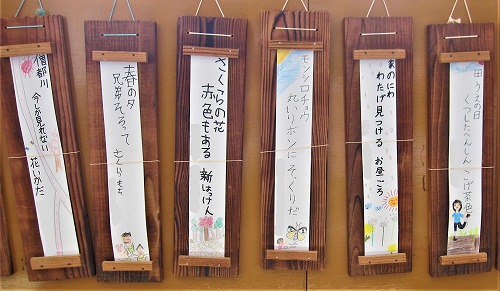 僧都川
今しか見れない
花いかだ
春の夕
兄弟そろって
さくらもち
さくらの花
赤色もある
新はっけん
モンシロチョウ
丸いリボンにそっくりだ
家のにわ
わたげ見つける
お昼ころ
田うえの日
くつしたへんしん
こげ茶色